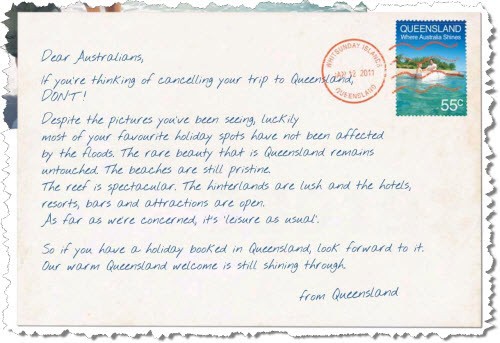 QUEENSLAND
Where Australia Shines
55c
WHITSUNDAY ISLANDS
2011
QUEENSLAND
Dear Australians,
If you're thinking of cancelling your trip to Queensland,
DON'T!
Despite the pictures you've been seeing, luckily
most of your favourite holiday spots have not been affected
by the floods. The rare beauty that is Queensland remains
untouched. The beaches are still pristine.
The reef is spectacular. The hinterlands are lush and the hotels,
resorts, bars and attractions are open.
As far as we're concerned, it's 'leisure as usual'.
So if you have a holiday booked in Queensland, look forward to it.
Our warm Queensland welcome is still shining through.
from Queensland